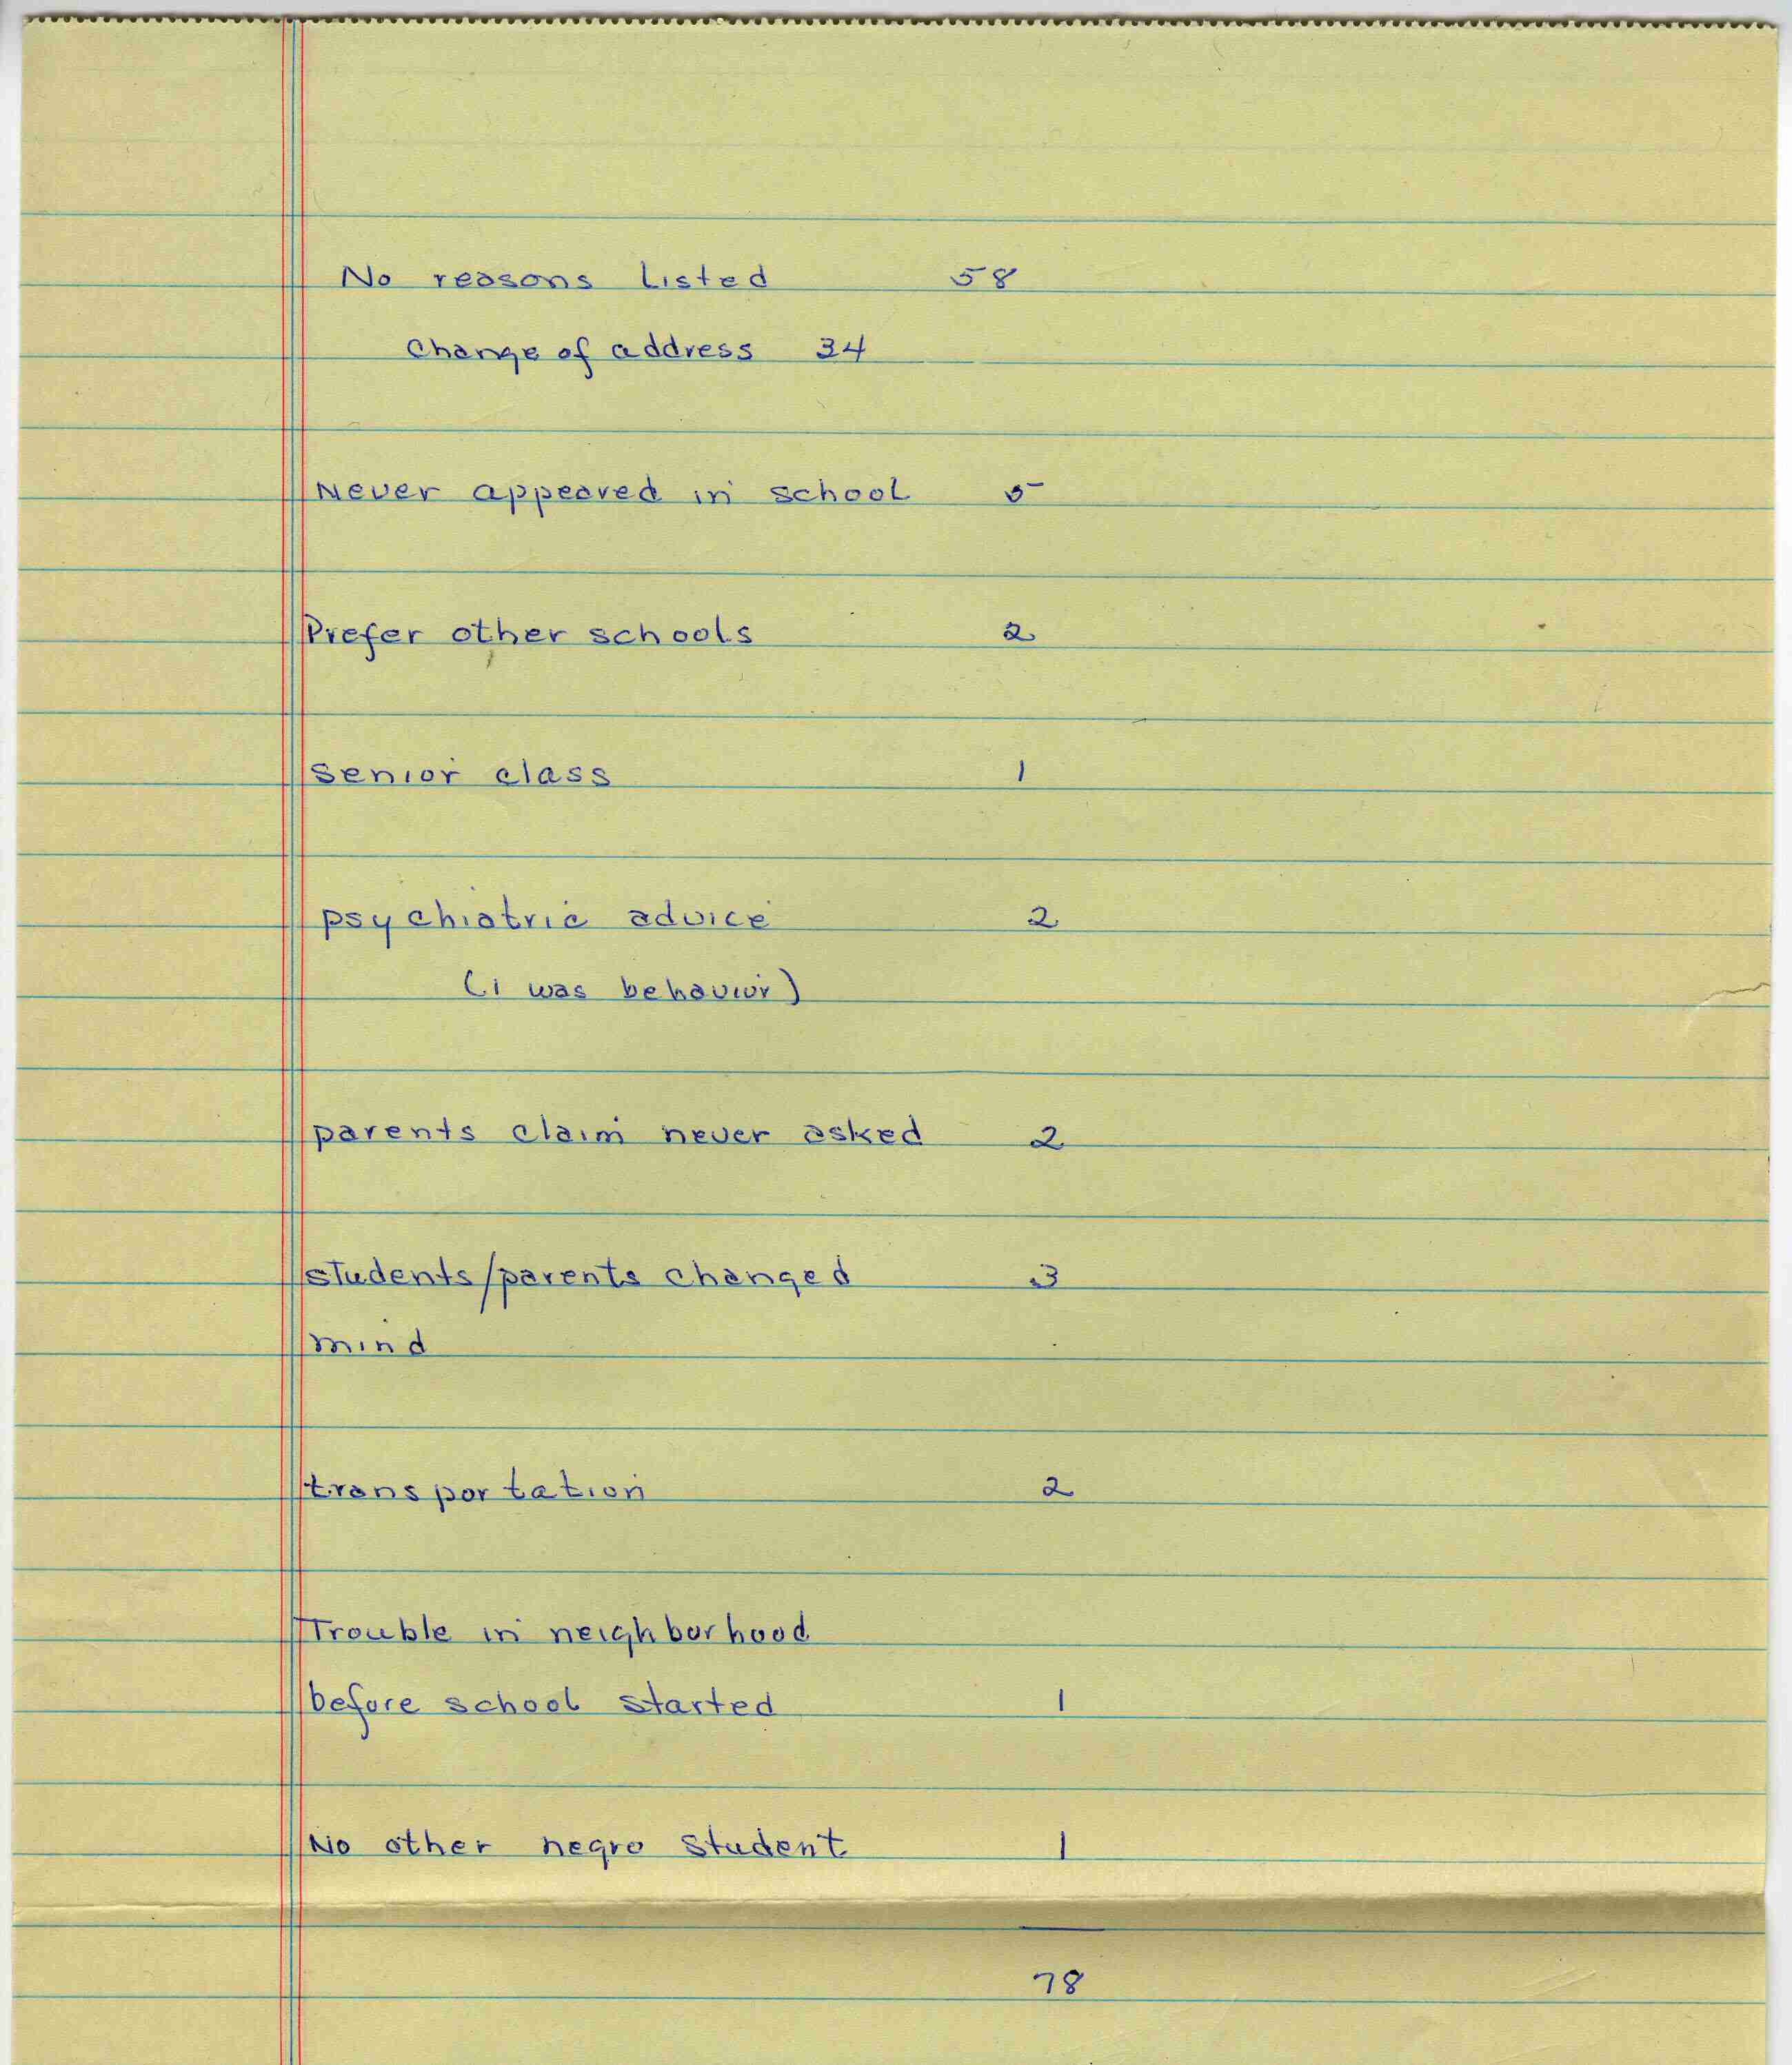 No reasons listed 58
Change of address 34
Never appeared in school 5
Prefer other schools 2
senior class 1
psychiatric advice 2
(1 was behavior)
parents claim never asked 2
students/parents changed 3
mind
transportation 2
Trouble in neighborhood
before school started 1
No other negro student 1
78